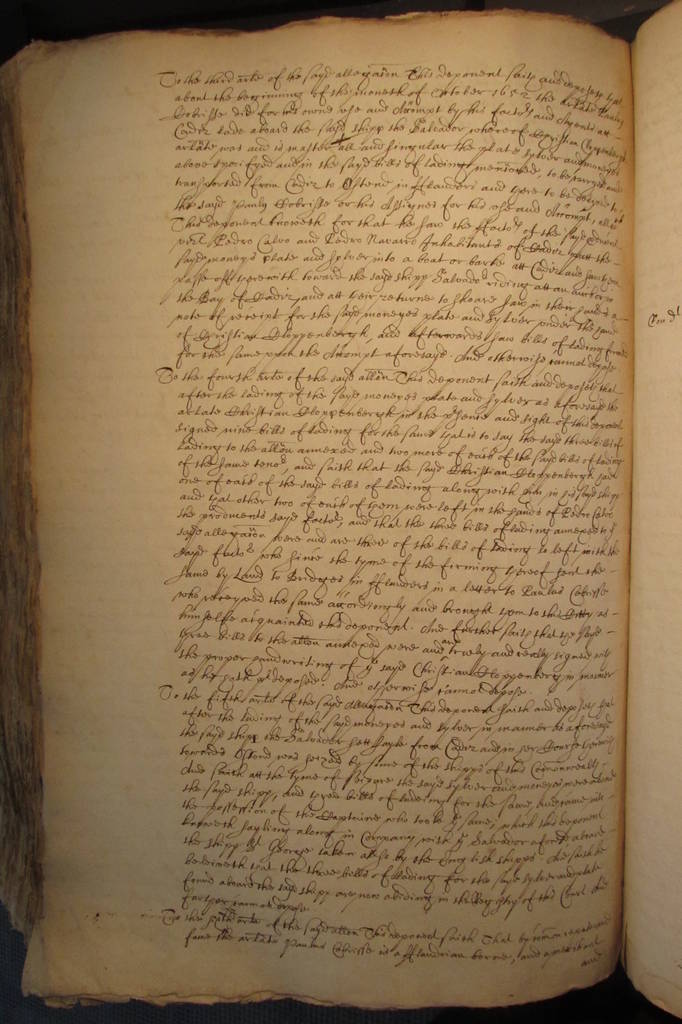 To the third arle of the sayd allegaon This deponent saith and deposeth that
about the beginning of the moneth of October 1652 the arlate Paulus
Cobrisse did for his owne use and Accompt by his factors and Agents att
Cadiz lade aboard the sayd shipp the Salvador whereof Christian Cloppenbergh
arlate was and is master all and singular the plate sylver and moneyes
above specifyed and in the sayd bills of lading mentioned, to be carryed and
transported from Cadiz to Ostend in fflanders and there to be delivered to
the sayd Paulus Cobrisse or his Assignes for his use and Accompt, all which
This deponent knoweth for that he saw the ffactors of the sayd Cobrisse
vizt Pedro Calvo and Pedro Navarro Inhabitants of Cadiz putt the
sayd moneys plate and sylver into a boat or barke att Cadiz and saw them
passe off therewith toward the sayd shipp Salvador riding att an anchor in
the Bay of Cadiz, and att their returne to shoare saw in their hands a
note of receipt for the sayd moneyes plate and sylver under the hand
of Christian Cloppenbergh, and afterwards saw bills of lading firmed
for the same upon the Accompt aforesayd. And otherwise cannot depose
To the fourth arle of the sayd allon This deponent saith and deposeth that
after the lading of the sayd moneyes plate and sylver as aforesayd the
arlate Christian Cloppenbergh in the presence and sight of this deponent
signed nine bills of lading for the same that is to say the sayd three bills of
lading to the allon annexed and two more of each of the sayd bills of lading
of the same tenor, and saith that the sayd Christian Cloppenbergh had
one of each of the sayd bills of lading along with him in his sayd shipp
and that other two of each of them were left in the hands of Pedro Calvo
the producents sayd factor, and that the three bills of lading annexed to the
sayd allegaon were and are three of the bills of lading so left with the
sayd factor who since the tyme of the firming thereof sent the
same by Land to Bridges in fflanders in a letter to Paulus Cobrisse
who received the same accordingly and brought them to this Citty as
himselfe acquainted this deponent. And further saith that the sayd
three bills to the allon annexed were and are truely and really signed with
the proper handwriting of the sayd Christian Cloppenbergh in manner
as he hath predeposed. And otherwise cannot depose.
To the fifth arle of the sayd Allegaon This deponent saith and deposeth that
after the lading of the sayd moneyes and sylver in manner as aforesayd
the sayd shipp the Salvador sett sayle from Cadiz and in her Course thence
towards Ostend was seized by some of the shipps of this Commonwealth.
And saith att the tyme of seizure the sayd sylver and moneyes were aboard
the sayd shipp, and three bills of lading for the same, and came into
the possession of the Captaine who tooke the same, which this deponent
knoweth sayling along in Company with the Salvador aforesayd aboard
the shipp St George taken alsoe by the English shipps. And saith he
beleeveth that the three bills of lading for the sayd sylver and plate
found aboard the sayd shipp are now abiding in the Registry of this Court And
further cannot depose.
To the sixth arle of the sayd allon This deponent saith That by common repute and
fame the arlate Paulus Cobrisse is a fflandrian borne, and a
and